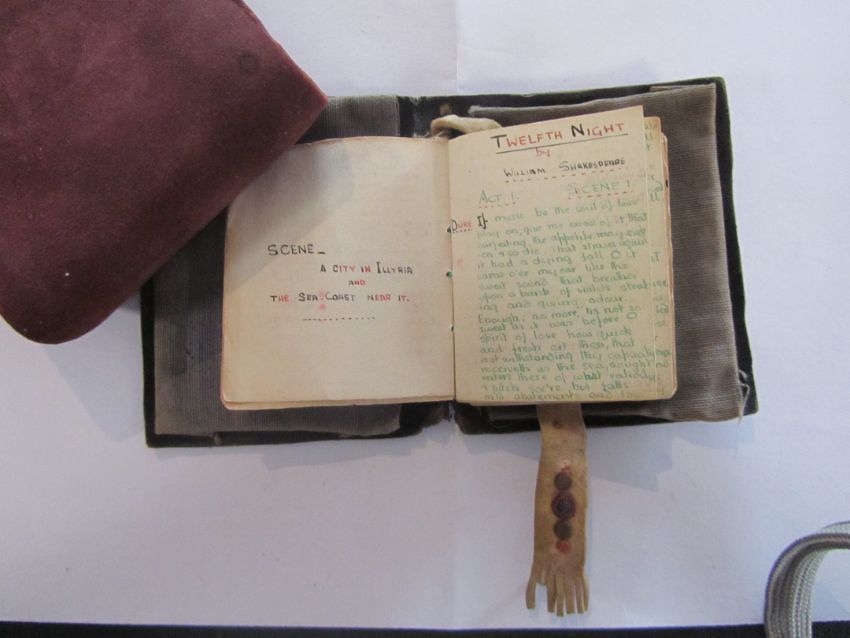 SCENE_
A CITY IN ILLYRIA
AND
THE SEA COAST NEAR IT.
TWELFTH NIGHT
by
WILLIAM SHAKESPEARE
ACT 1. SCENE 1.
DUKE If music be the soul of love
play on, give me excess of it, that
surfeiting, the appetite may
& so die. That strain again
it had a dying fall. O it
came o'er my ear like the
sweet sound that breathes
upon a bank of violets steal
ing and giving odour.
Enough; no more, 'tis not so
sweet as it was before. O
spirit of love how quick
and fresh art thou, that
not withstanding thy capacity
receiveth as the sea, nought
enters there of what validity
& pitch soe're but falls
into abatements and